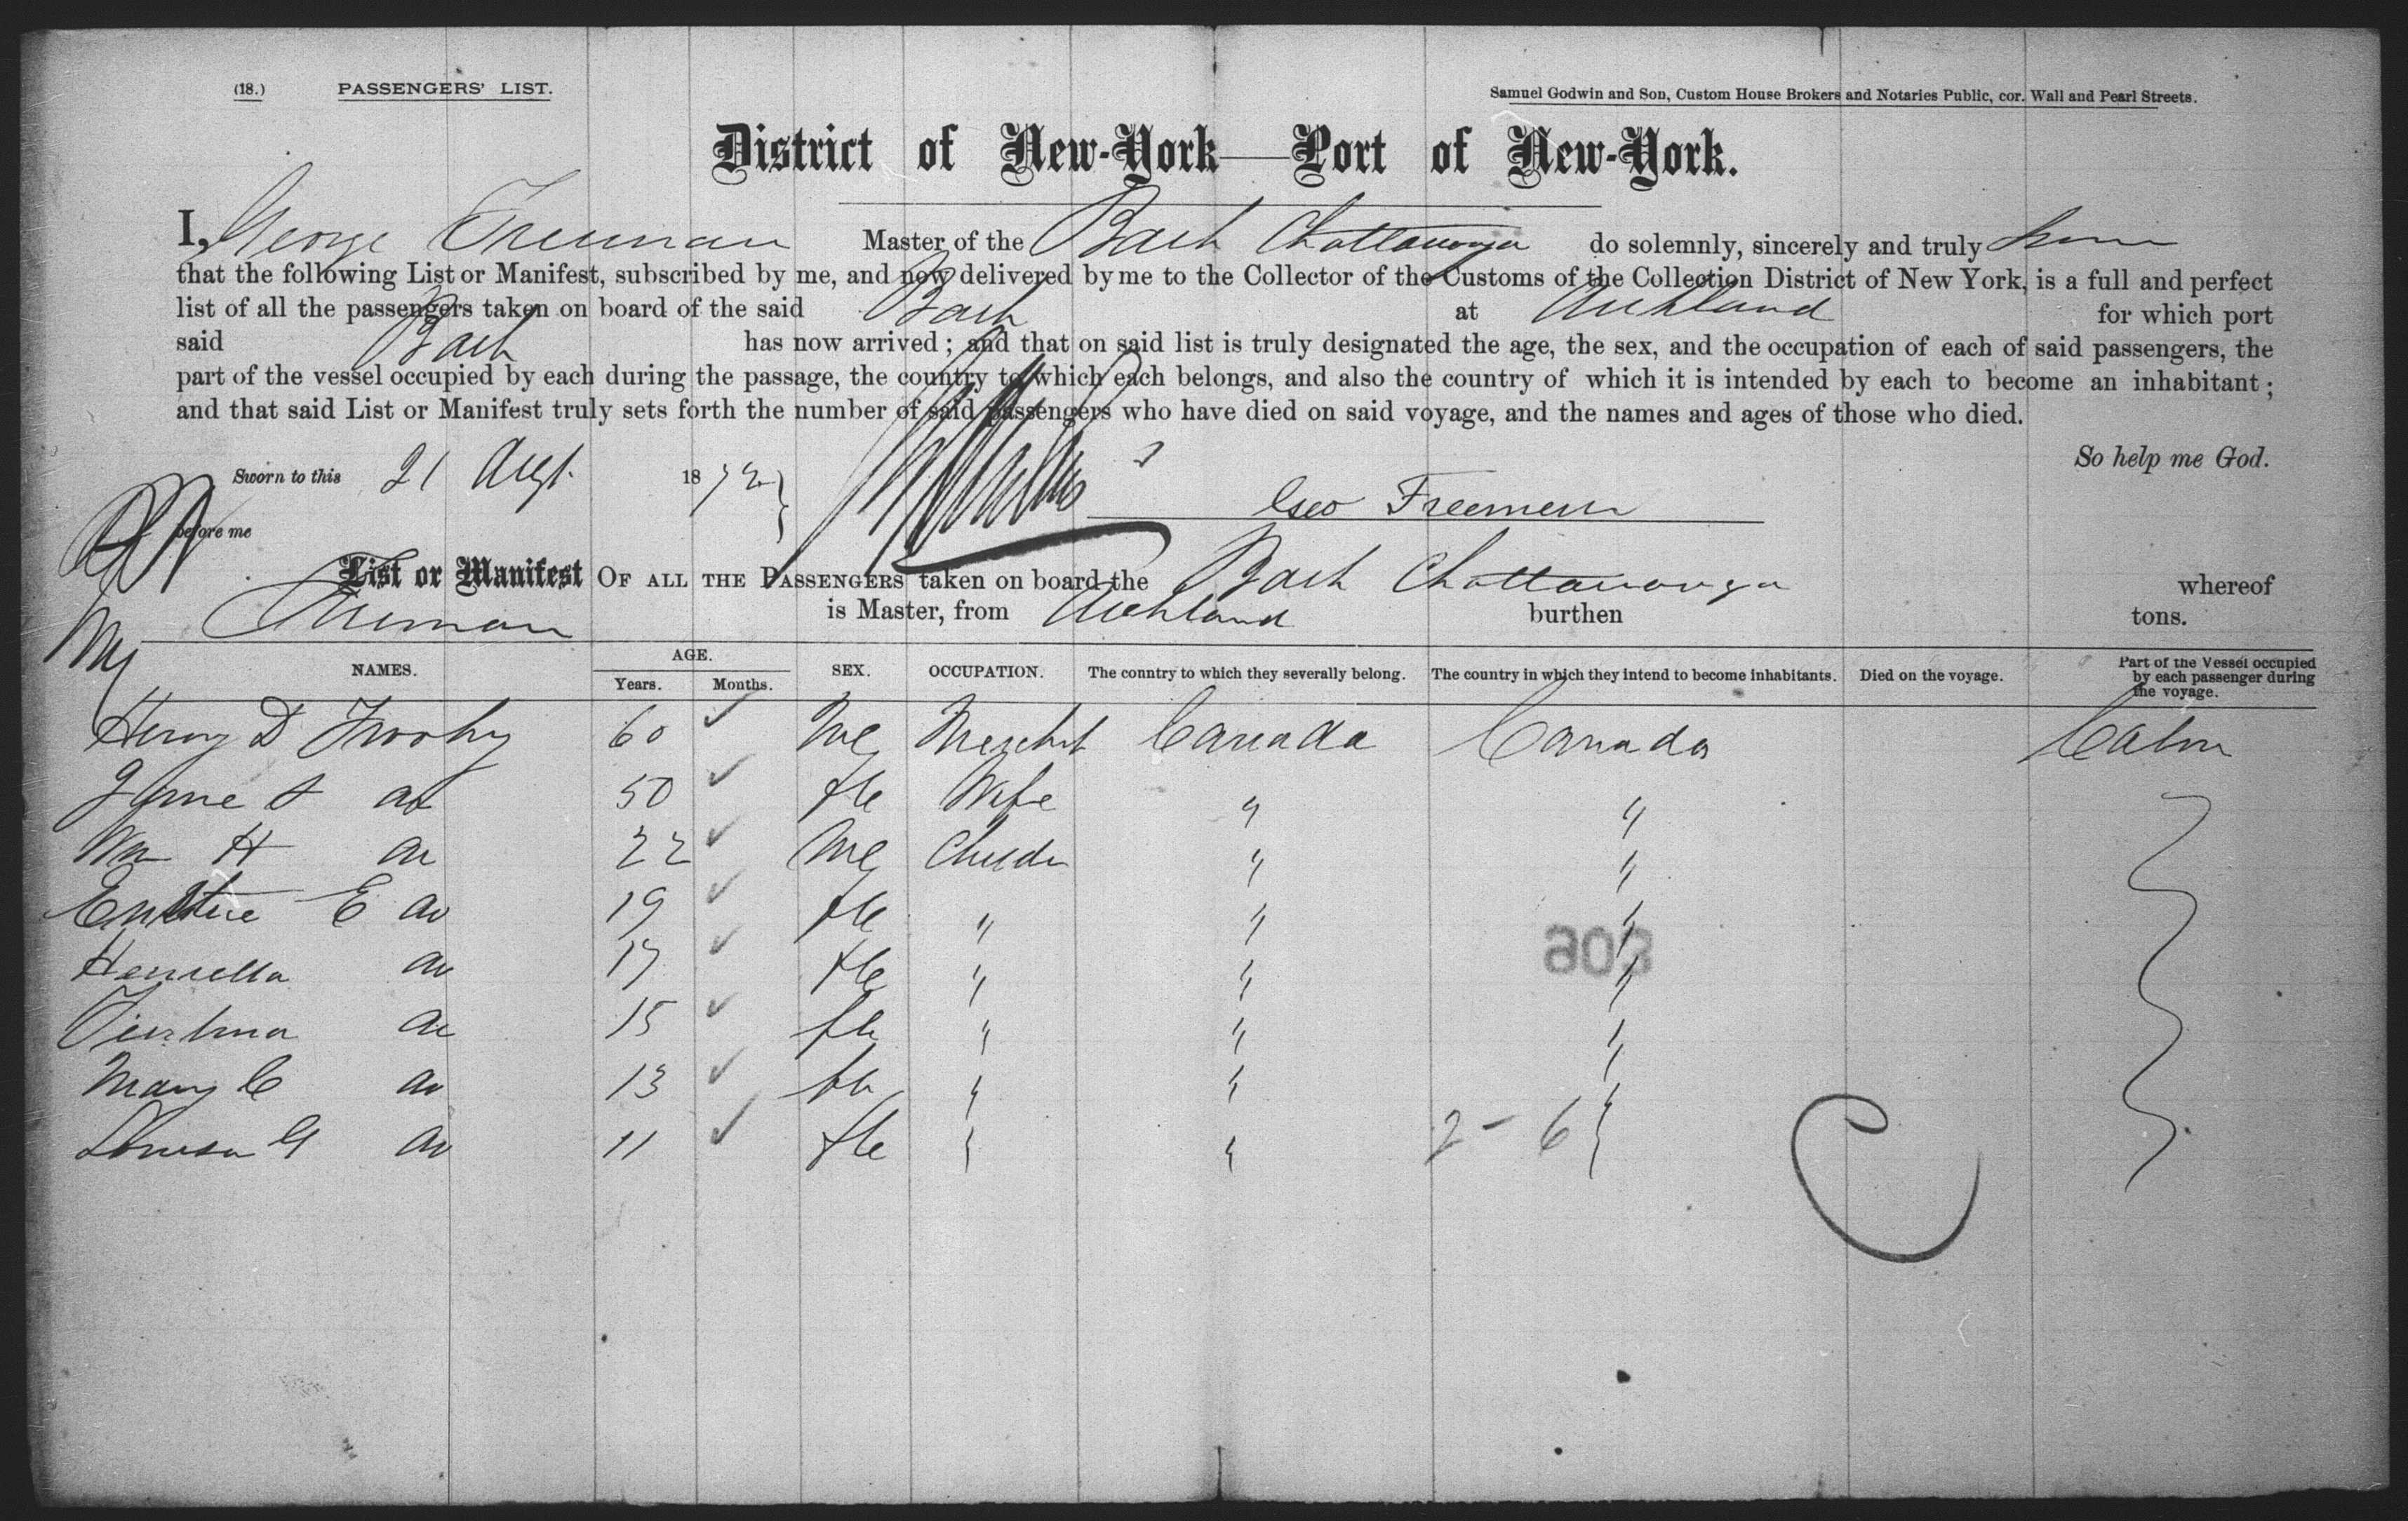 (18.) PASSENGERS' LIST.
Samuel Godwin and Son, Custom House Brokers and Notaries Public, cor. Wall and Pearl Streets.
District of New-York—Port of New-York.
I, George Freeman Master of the Bark Chattanooga do solemnly, sincerely and truly
that the following List or Manifest, subscribed by me, and now delivered by me to the Collector of the Customs of the Collection District of New York, is a full and perfect
list of all the passengers taken on board of the said Bark at Auckland for which port
said Bark has now arrived; and that on said list is truly designated the age, the sex, and the occupation of each of said passengers, the
part of the vessel occupied by each during the passage, the country to which each belongs, and also the country of which it is intended by each to become an inhabitant;
and that said List or Manifest truly sets forth the number of said passengers who have died on said voyage, and the names and ages of those who died.
So help me God.
Sworn to this 21 Augt. 1872
before me
Geo Freeman
List or Manifest OF ALL THE PASSENGERS taken on board the Bark Chattanooga whereof
Freeman is Master, from Auckland burthen tons.
NAMES. AGE. Years. Months. SEX. OCCUPATION. The country to which they severally belong. The country in which they intend to become inhabitants. Died on the voyage. Part of the Vessel occupied by each passenger during the voyage.
Henry D 60 Me Mercht Canada Canada Cabin
Jane S 50 fle Wife " "
Wm H 22 Me Childn " "
E 19 fle " " "
Henrietta 17 fle " " "
15 fle " " "
Mary C 13 fle " " "
Louisa G 11 fle " " "
2 - 6
C